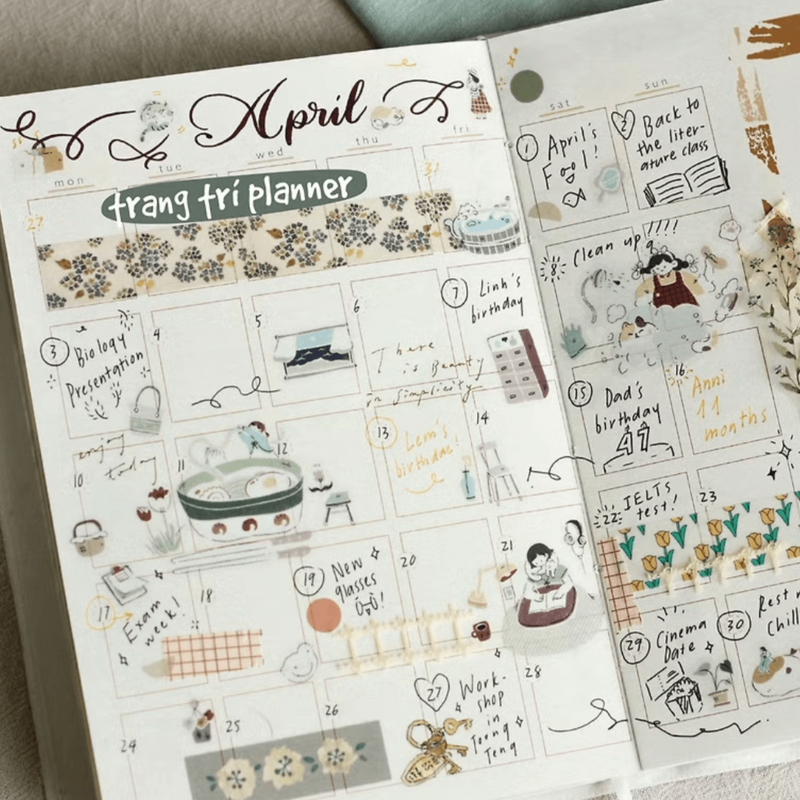 April
mon
tue
wed
thu
fri
sat
sun
trang trí planner
27
31
1
April's
Fool!
2
Back to
the liter-
ature class
3
Biology
Presentation
4
5
6
There
is Beauty
in Simplicity
7
Linh's
birthday
8
Clean up !!!!
9
enjoy
today
10
11
12
13
Lem's
birthday!
14
15
Dad's
birthday
47
16
Anni
11
months
17
Exam
week!
18
19
New
glasses
20
21
22
IELTS
test!
23
24
25
26
27
Work-
shop
in
Toong
Teng
28
29
Cinema
Date
30
Rest
Chill